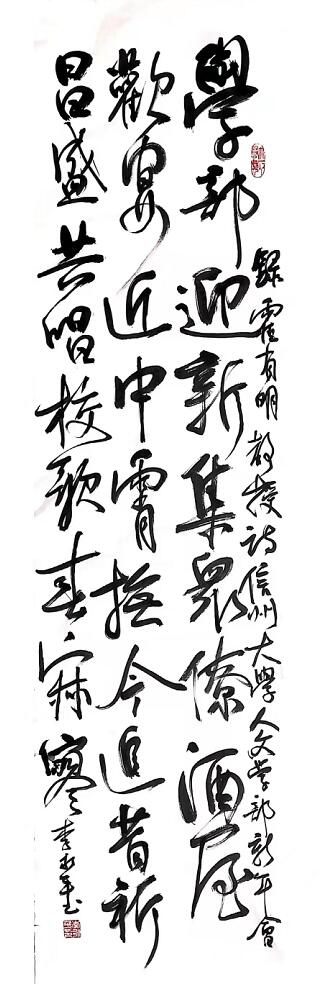 錄霍有明教授詩信州大學人文學部新年會
學部迎新集眾僚酒屋
歡宴近中霄撫今追昔祈
昌盛共唱校歌春寂寥
李